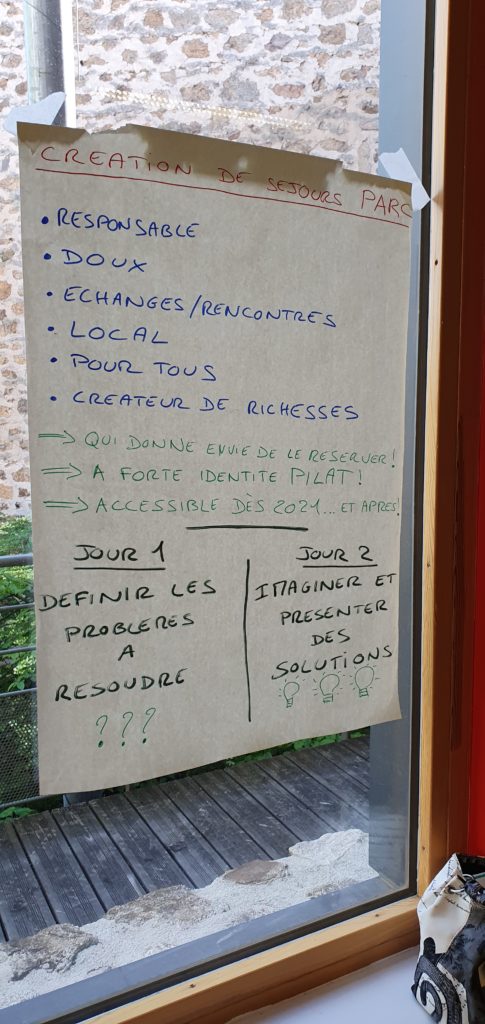 CREATION DE SEJOURS PARC
• RESPONSABLE
• DOUX
• ECHANGES/RENCONTRES
• LOCAL
• POUR TOUS
• CREATEUR DE RICHESSES
⇒ QUI DONNE ENVIE DE LE RESERVER!
⇒ A FORTE IDENTITE PILAT!
⇒ ACCESSIBLE DÈS 2021... ET APRES!
JOUR 1
DEFINIR LES
PROBLEMES
A
RESOUDRE
???
JOUR 2
IMAGINER ET
PRESENTER
DES
SOLUTIONS